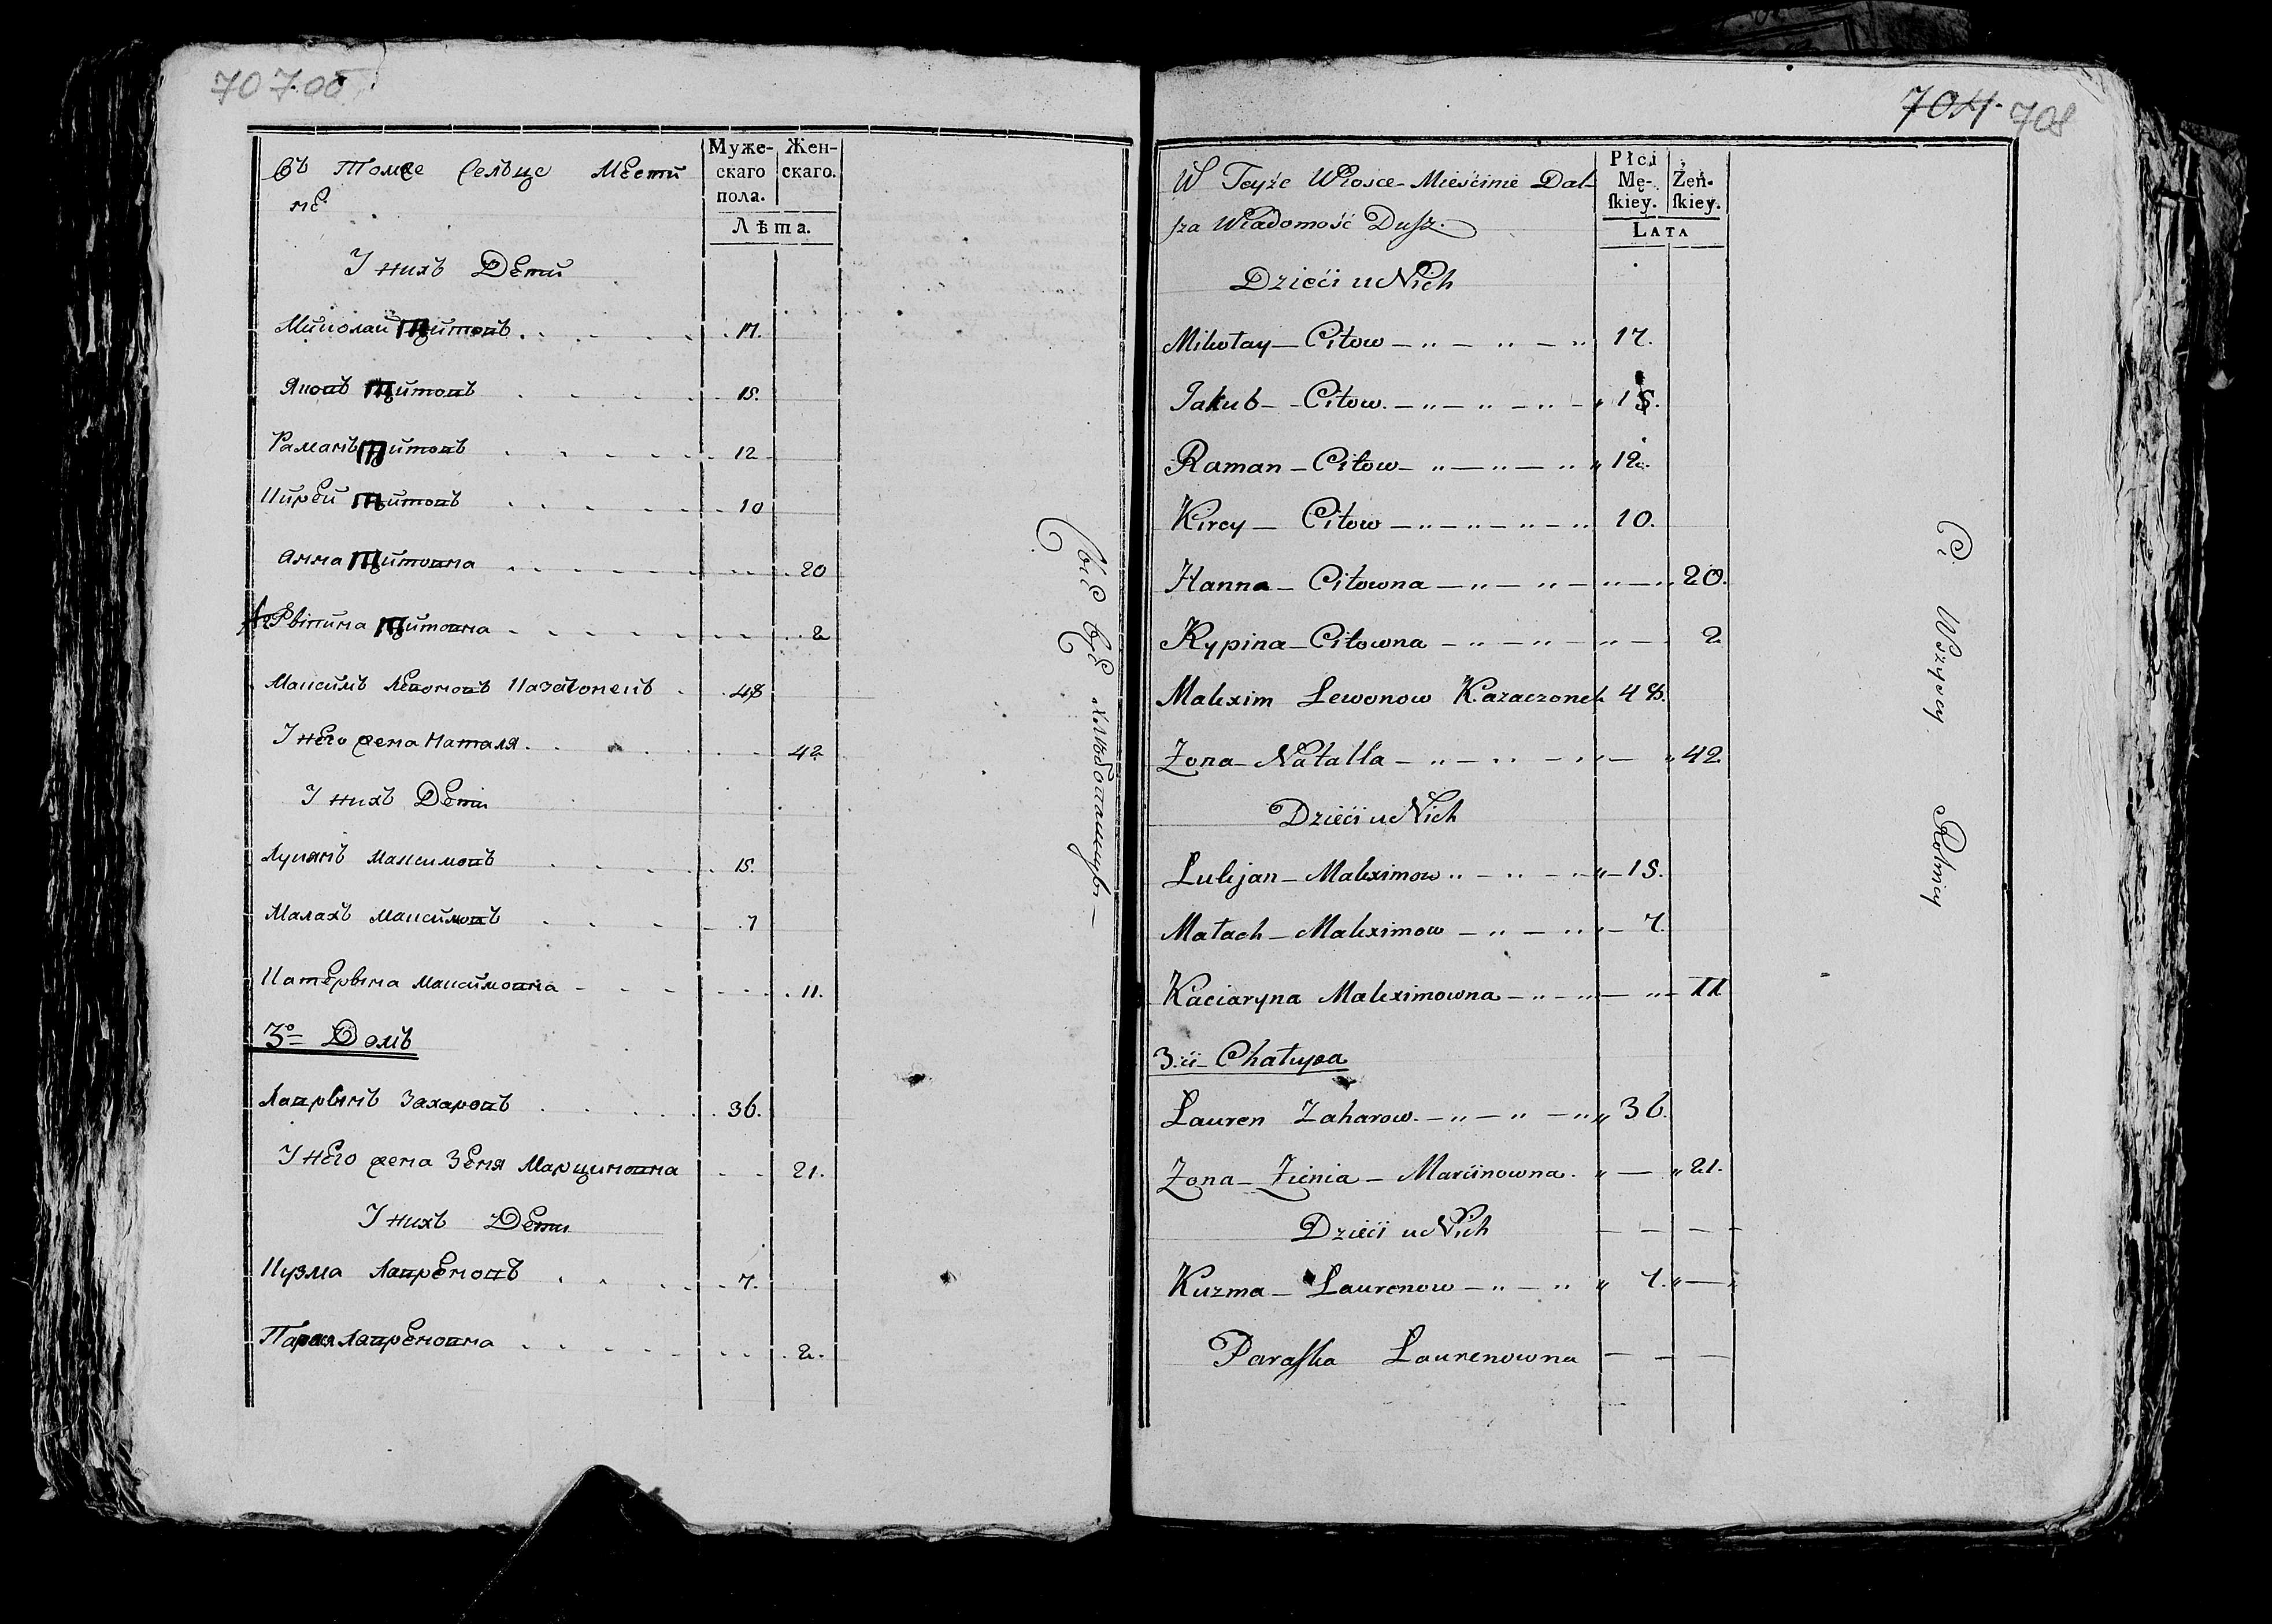 70 700
въ Томже Сельце Мести
не
Муже-
скаго
пола.
Жен-
скаго.
Лѣта.
У нихъ Дети
Миколай Титовъ 17.
Яковъ Титовъ 15.
Раманъ Титовъ 12
Кирей Титовъ 10
Анна Титовна 20
Титовна 2
Максимъ Левоновъ Казачонекъ 48
У него жена Наталя 42
У нихъ Дети
Лукянъ Максимовъ 15.
Малахъ Максимовъ 7
Катерына Максимовна 11.
3º Домъ
Лаврынъ Захаровъ 36.
У него жена Зеня Марцыновна 21.
У нихъ Дети
Кузма Лавреновъ 7.
Лавреновна 2.
Сыи всѣ хлѣбопашцы
704. 708
W Teyże Włosce Mieścinie Dal-
sza Wiadomość Dusz.
Płci
Mę-
skiey.
Żeń-
skiey.
LATA
Dzieći u Nich
Mikołay Citow 17.
Jakub Citow 15.
Raman Citow 12.
Kirey Citow 10.
Hanna Citowna 20.
Kypina Citowna 2
Malexim Lewonow Kazaczonek 48.
Zona Natalla 42
Dzieći u Nich
Lukjan Maleximow 15.
Małach Maleximow 7.
Kaciaryna Maleximowna 11
3.ii Chałupa
Lauren Zaharow 36.
Zona Zienia Marcinowna 21.
Dzieći u Nich
Kuzma Laurenow 7.
Paraska Laurenowna
Ci Wszyscy Rolnicy